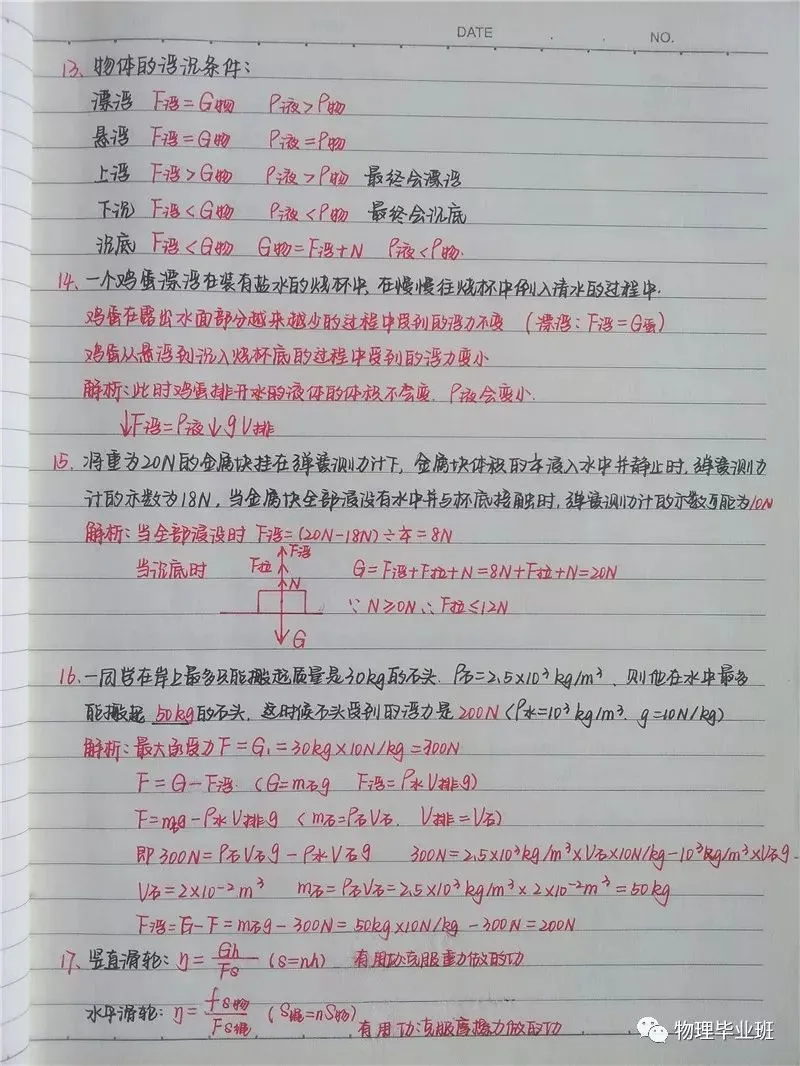 DATE
NO.
13. 物体的浮沉条件:
漂浮 F浮=G物 ρ液>ρ物
悬浮 F浮=G物 ρ液=ρ物
上浮 F浮>G物 ρ液>ρ物 最终会漂浮
下沉 F浮<G物 ρ液<ρ物 最终会沉底
沉底 F浮<G物 G物=F浮+N ρ液<ρ物.
14. 一个鸡蛋漂浮在装有盐水的烧杯中, 在慢慢往烧杯中倒入清水的过程中.
鸡蛋在露出水面部分越来越少的过程中受到的浮力不变 (漂浮: F浮=G蛋)
鸡蛋从悬浮到沉入烧杯底的过程中受到的浮力变小
解析: 此时鸡蛋排开水的液体的体积不会变. ρ液会变小.
↓F浮=ρ液↓gV排
15. 将重为20N的金属块挂在弹簧测力计下, 金属块体积的本浸入水中并静止时, 弹簧测力
计的示数为18N, 当金属块全部浸没有水中并与杯底接触时, 弹簧测力计的示数可能为10N
解析: 当全部浸没时 F浮=(20N-18N)÷本=8N
当沉底时 F拉 F浮 G=F浮+F拉+N=8N+F拉+N=20N
N
∵N≥0N ∴F拉≤12N
G
16. 一同学在岸上最多只能搬起质量是30kg的石头. ρ石=2.5×10³kg/m³. 则他在水中最多
能搬起 50kg的石头. 这时候石头受到的浮力是 200N (ρ水=10³kg/m³. g=10N/kg)
解析: 最大承受力 F=G₁=30kg×10N/kg=300N
F=G-F浮. (G=m石g F浮=ρ水V排g)
F=m石g-ρ水V排g (m石=ρ石V石. V排=V石)
即300N=ρ石V石g-ρ水V石g 300N=2.5×10³kg/m³×V石×10N/kg-10³kg/m³×V石g.
V石=2×10⁻²m³ m石=ρ石V石=2.5×10³kg/m³×2×10⁻²m³=50kg
F浮=G-F=m石g-300N=50kg×10N/kg-300N=200N
17. 竖直滑轮: η=Gh/Fs (s=nh) 有用功:克服重力做的功
水平滑轮: η=fs物/Fs绳 (S绳=nS物) 有用功:克服摩擦力做的功
物理毕业班